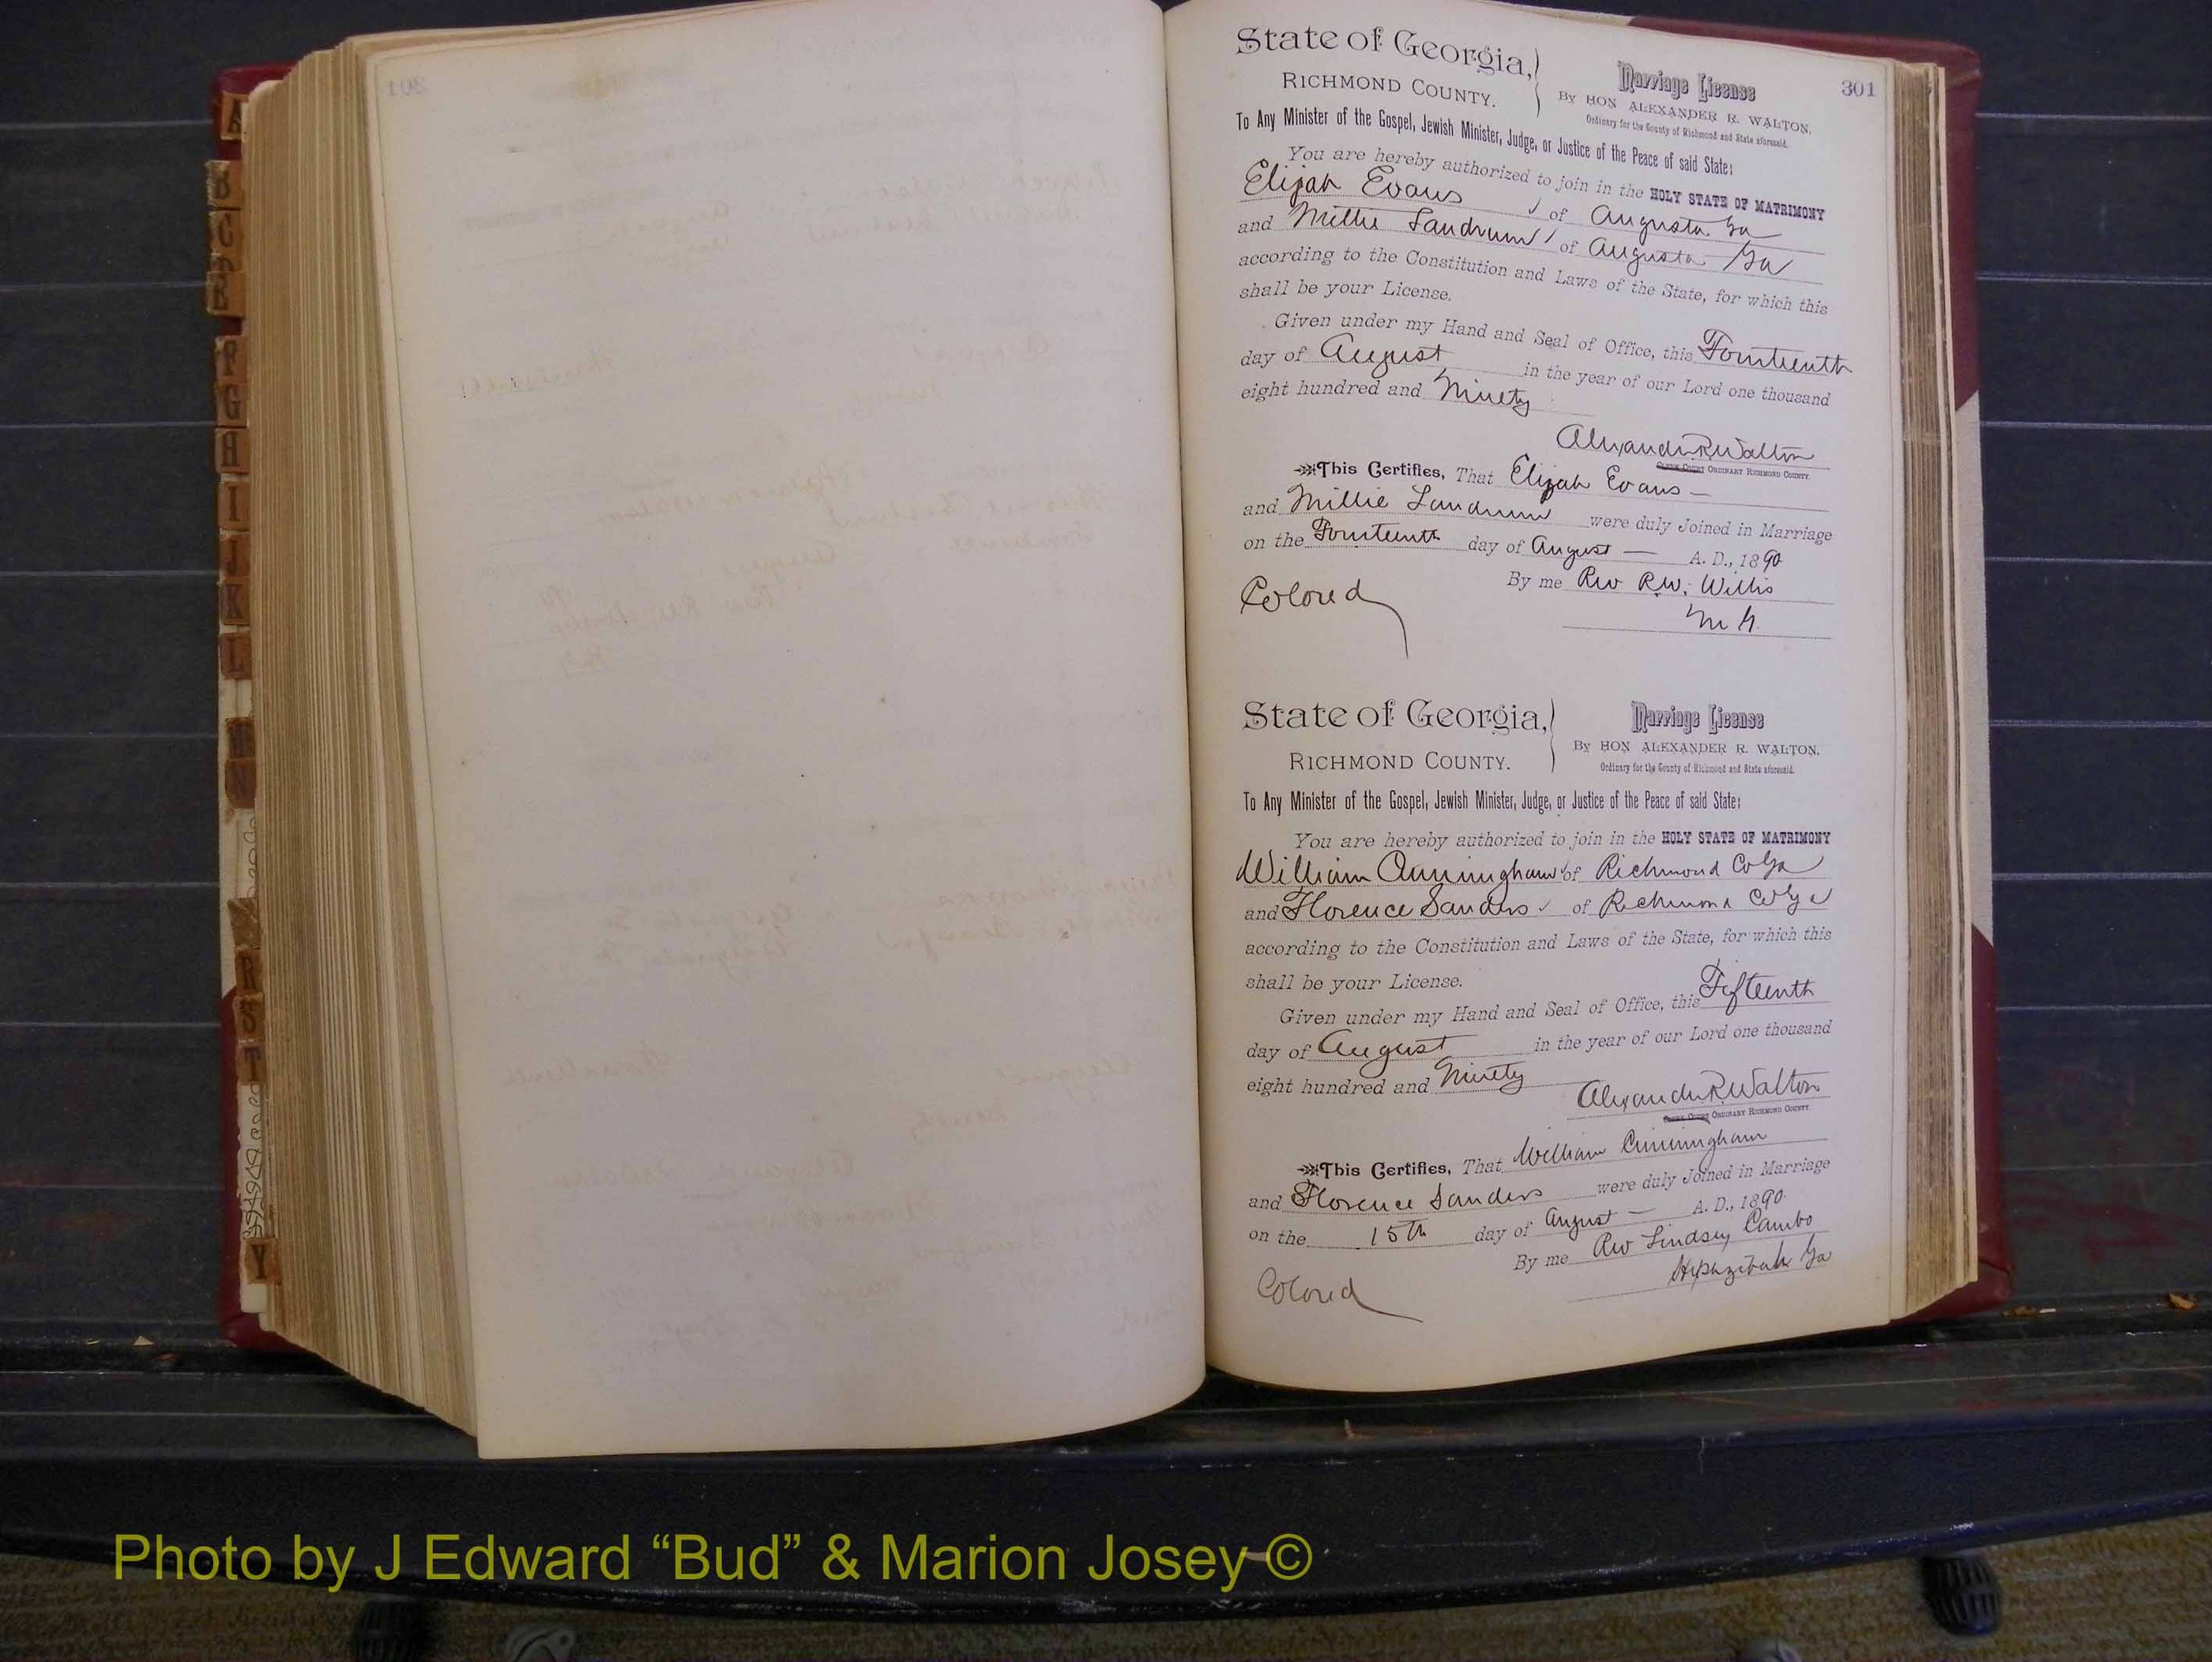 A
B
C
D
E
F
G
H
I
J
K
L
M
N
R
S
T
Y
301
State of Georgia,
RICHMOND COUNTY.
Marriage License
By HON ALEXANDER R. WALTON,
Ordinary for the County of Richmond and State aforesaid.
To Any Minister of the Gospel, Jewish Minister, Judge, or Justice of the Peace of said State:
You are hereby authorized to join in the HOLY STATE OF MATRIMONY
Elijah Evans of Augusta Ga
and Millie Landrum of Augusta Ga
according to the Constitution and Laws of the State, for which this
shall be your License.
Given under my Hand and Seal of Office, this Fourteenth
day of August in the year of our Lord one thousand
eight hundred and Ninety
Alexander R. Walton
CLERK COURT ORDINARY RICHMOND COUNTY.
This Certifies, That Elijah Evans
and Millie Landrum were duly Joined in Marriage
on the Fourteenth day of August A. D., 1890
By me Rev R.W. Willis
M G.
Colored
State of Georgia,
RICHMOND COUNTY.
Marriage License
By HON ALEXANDER R. WALTON,
Ordinary for the County of Richmond and State aforesaid.
To Any Minister of the Gospel, Jewish Minister, Judge, or Justice of the Peace of said State:
You are hereby authorized to join in the HOLY STATE OF MATRIMONY
William Cunningham of Richmond Co Ga
and Florence Sanders of Richmond Co Ga
according to the Constitution and Laws of the State, for which this
shall be your License.
Given under my Hand and Seal of Office, this Fifteenth
day of August in the year of our Lord one thousand
eight hundred and Ninety
Alexander R. Walton
CLERK COURT ORDINARY RICHMOND COUNTY.
This Certifies, That William Cunningham
and Florence Sanders were duly Joined in Marriage
on the 15th day of August A. D., 1890
By me Rev Lindsey Cambo
Hephzibah Ga
Colored
Photo by J Edward “Bud” & Marion Josey ©